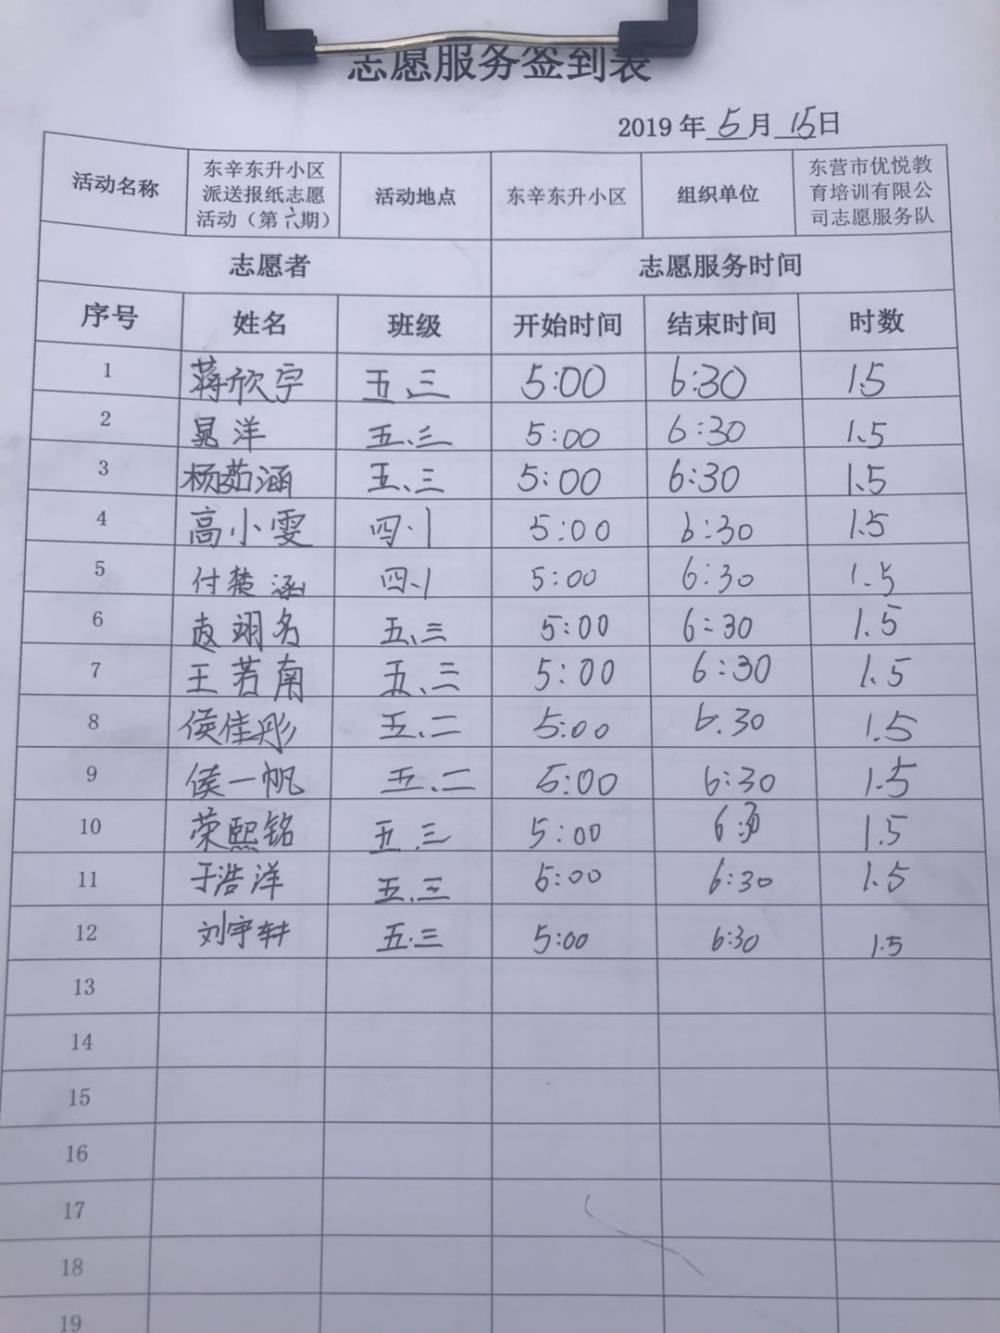 志愿服务签到表
2019 年 5 月 15 日
活动名称 东辛东升小区派送报纸志愿活动（第六期） 活动地点 东辛东升小区 组织单位 东营市优悦教育培训有限公司志愿服务队
志愿者 志愿服务时间
序号 姓名 班级 开始时间 结束时间 时数
1 蒋欣宇 五.三 5:00 6:30 1.5
2 晁洋 五.三 5:00 6:30 1.5
3 杨茹涵 五、三 5:00 6:30 1.5
4 高小雯 四.1 5:00 6:30 1.5
5 付楚涵 四.1 5:00 6:30 1.5
6 赵翊名 五.三 5:00 6:30 1.5
7 王若南 五、三 5:00 6:30 1.5
8 侯佳彤 五.二 5:00 6.30 1.5
9 侯一帆 五.二 5:00 6:30 1.5
10 荣熙铭 五.三 5:00 6:30 1.5
11 于浩洋 五.三 5:00 6:30 1.5
12 刘宇轩 五.三 5:00 6:30 1.5
13
14
15
16
17
18
19